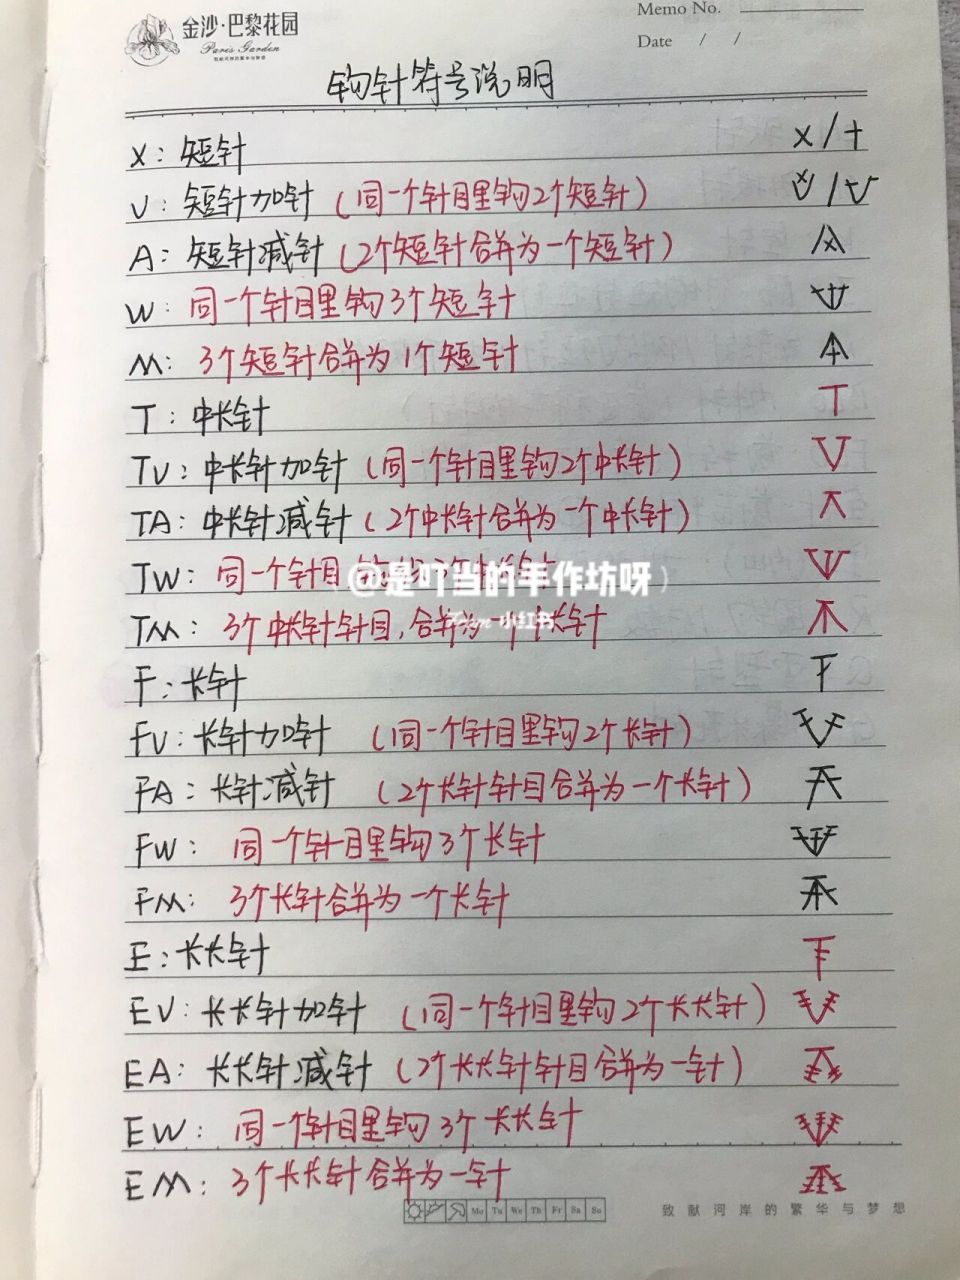 金沙·巴黎花园
Paris Garden
Memo No.
Date / /
钩针符号说明
X：短针 X/+
V：短针加针（同一个针目里钩2个短针）
A：短针减针（2个短针合并为一个短针）
W：同一个针目里钩3个短针
M：3个短针合并为1个短针
T：中长针 T
TV：中长针加针（同一个针目里钩2个中长针）
TA：中长针减针（2个中长针合并为一个中长针）
TW：同一个针目
@是叮当的手作坊呀
小红书
TM：3个中长针针目，合并为一个中长针
F：长针
FV：长针加针（同一个针目里钩2个长针）
FA：长针减针（2个长针针目合并为一个长针）
FW：同一个针目里钩3个长针
FM：3个长针合并为一个长针
E：长长针
EV：长长针加针（同一个针目里钩2个长长针）
EA：长长针减针（2个长长针针目合并为一针）
EW：同一个针目里钩3个长长针
EM：3个长长针合并为一针
Mo Tu We Th Fr Sa Su
致献河岸的繁华与梦想